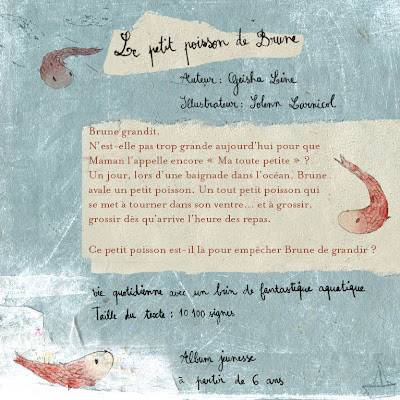 Le petit poisson de Brune
Auteur : Geisha Line
Illustrateur : Solenn Larnicol
Brune grandit.
N'est-elle pas trop grande aujourd'hui pour que
Maman l'appelle encore « Ma toute petite » ?
Un jour, lors d'une baignade dans l'océan, Brune
avale un petit poisson. Un tout petit poisson qui
se met à tourner dans son ventre... et à grossir,
grossir dès qu'arrive l'heure des repas.
Ce petit poisson est-il là pour empêcher Brune de grandir ?
vie quotidienne avec un brin de fantastique aquatique
Taille du texte : 10 100 signes
Album jeunesse
à partir de 6 ans